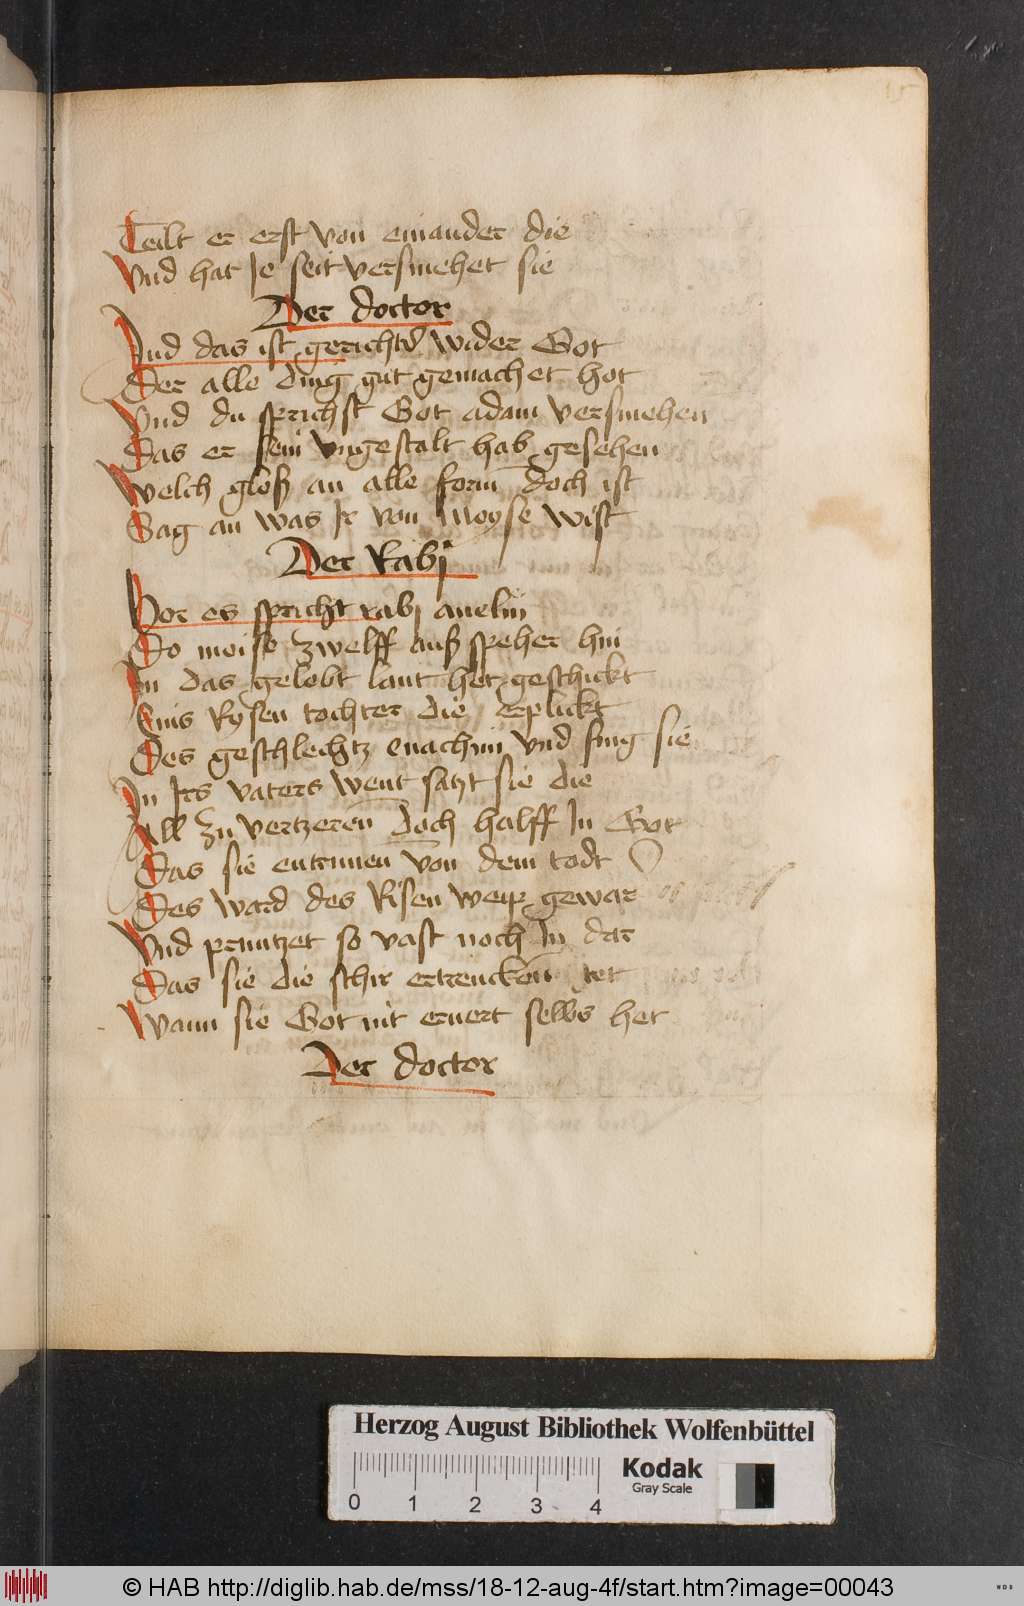 15
Teilt er erst von einander die
Vnd hat Je seit versmehet sie
Der doctor
Jud das ist gericht wider Got
Der alle ding gut gemachet hot
Vnd du sprichst Got adam versmehen
Das er sein vngestalt hab gesehen
Welch gloß an alle form doch ist
Sag an was Jr von Moyse wist
Der Rabj
Hor es spricht rabj
Do moise zwelff auß speher hin
In das gelobt lant het geschickt
Eins Rysen tochter die erplickt
Des geschlechtz enachim vnd fing sie
In Irs vaters went satzt sie die
All zu vertzeren doch halff In Got
Das sie entrinnen von dem todt
Des ward des Risen weip gewar
Vnd pruntzet so vast noch In dar
Das sie die schir ertrencken tet
Wann sie Got nit ernert selbs het
Der doctor
Herzog August Bibliothek Wolfenbüttel
0 1 2 3 4
Kodak
Gray Scale
© HAB http://diglib.hab.de/mss/18-12-aug-4f/start.htm?image=00043